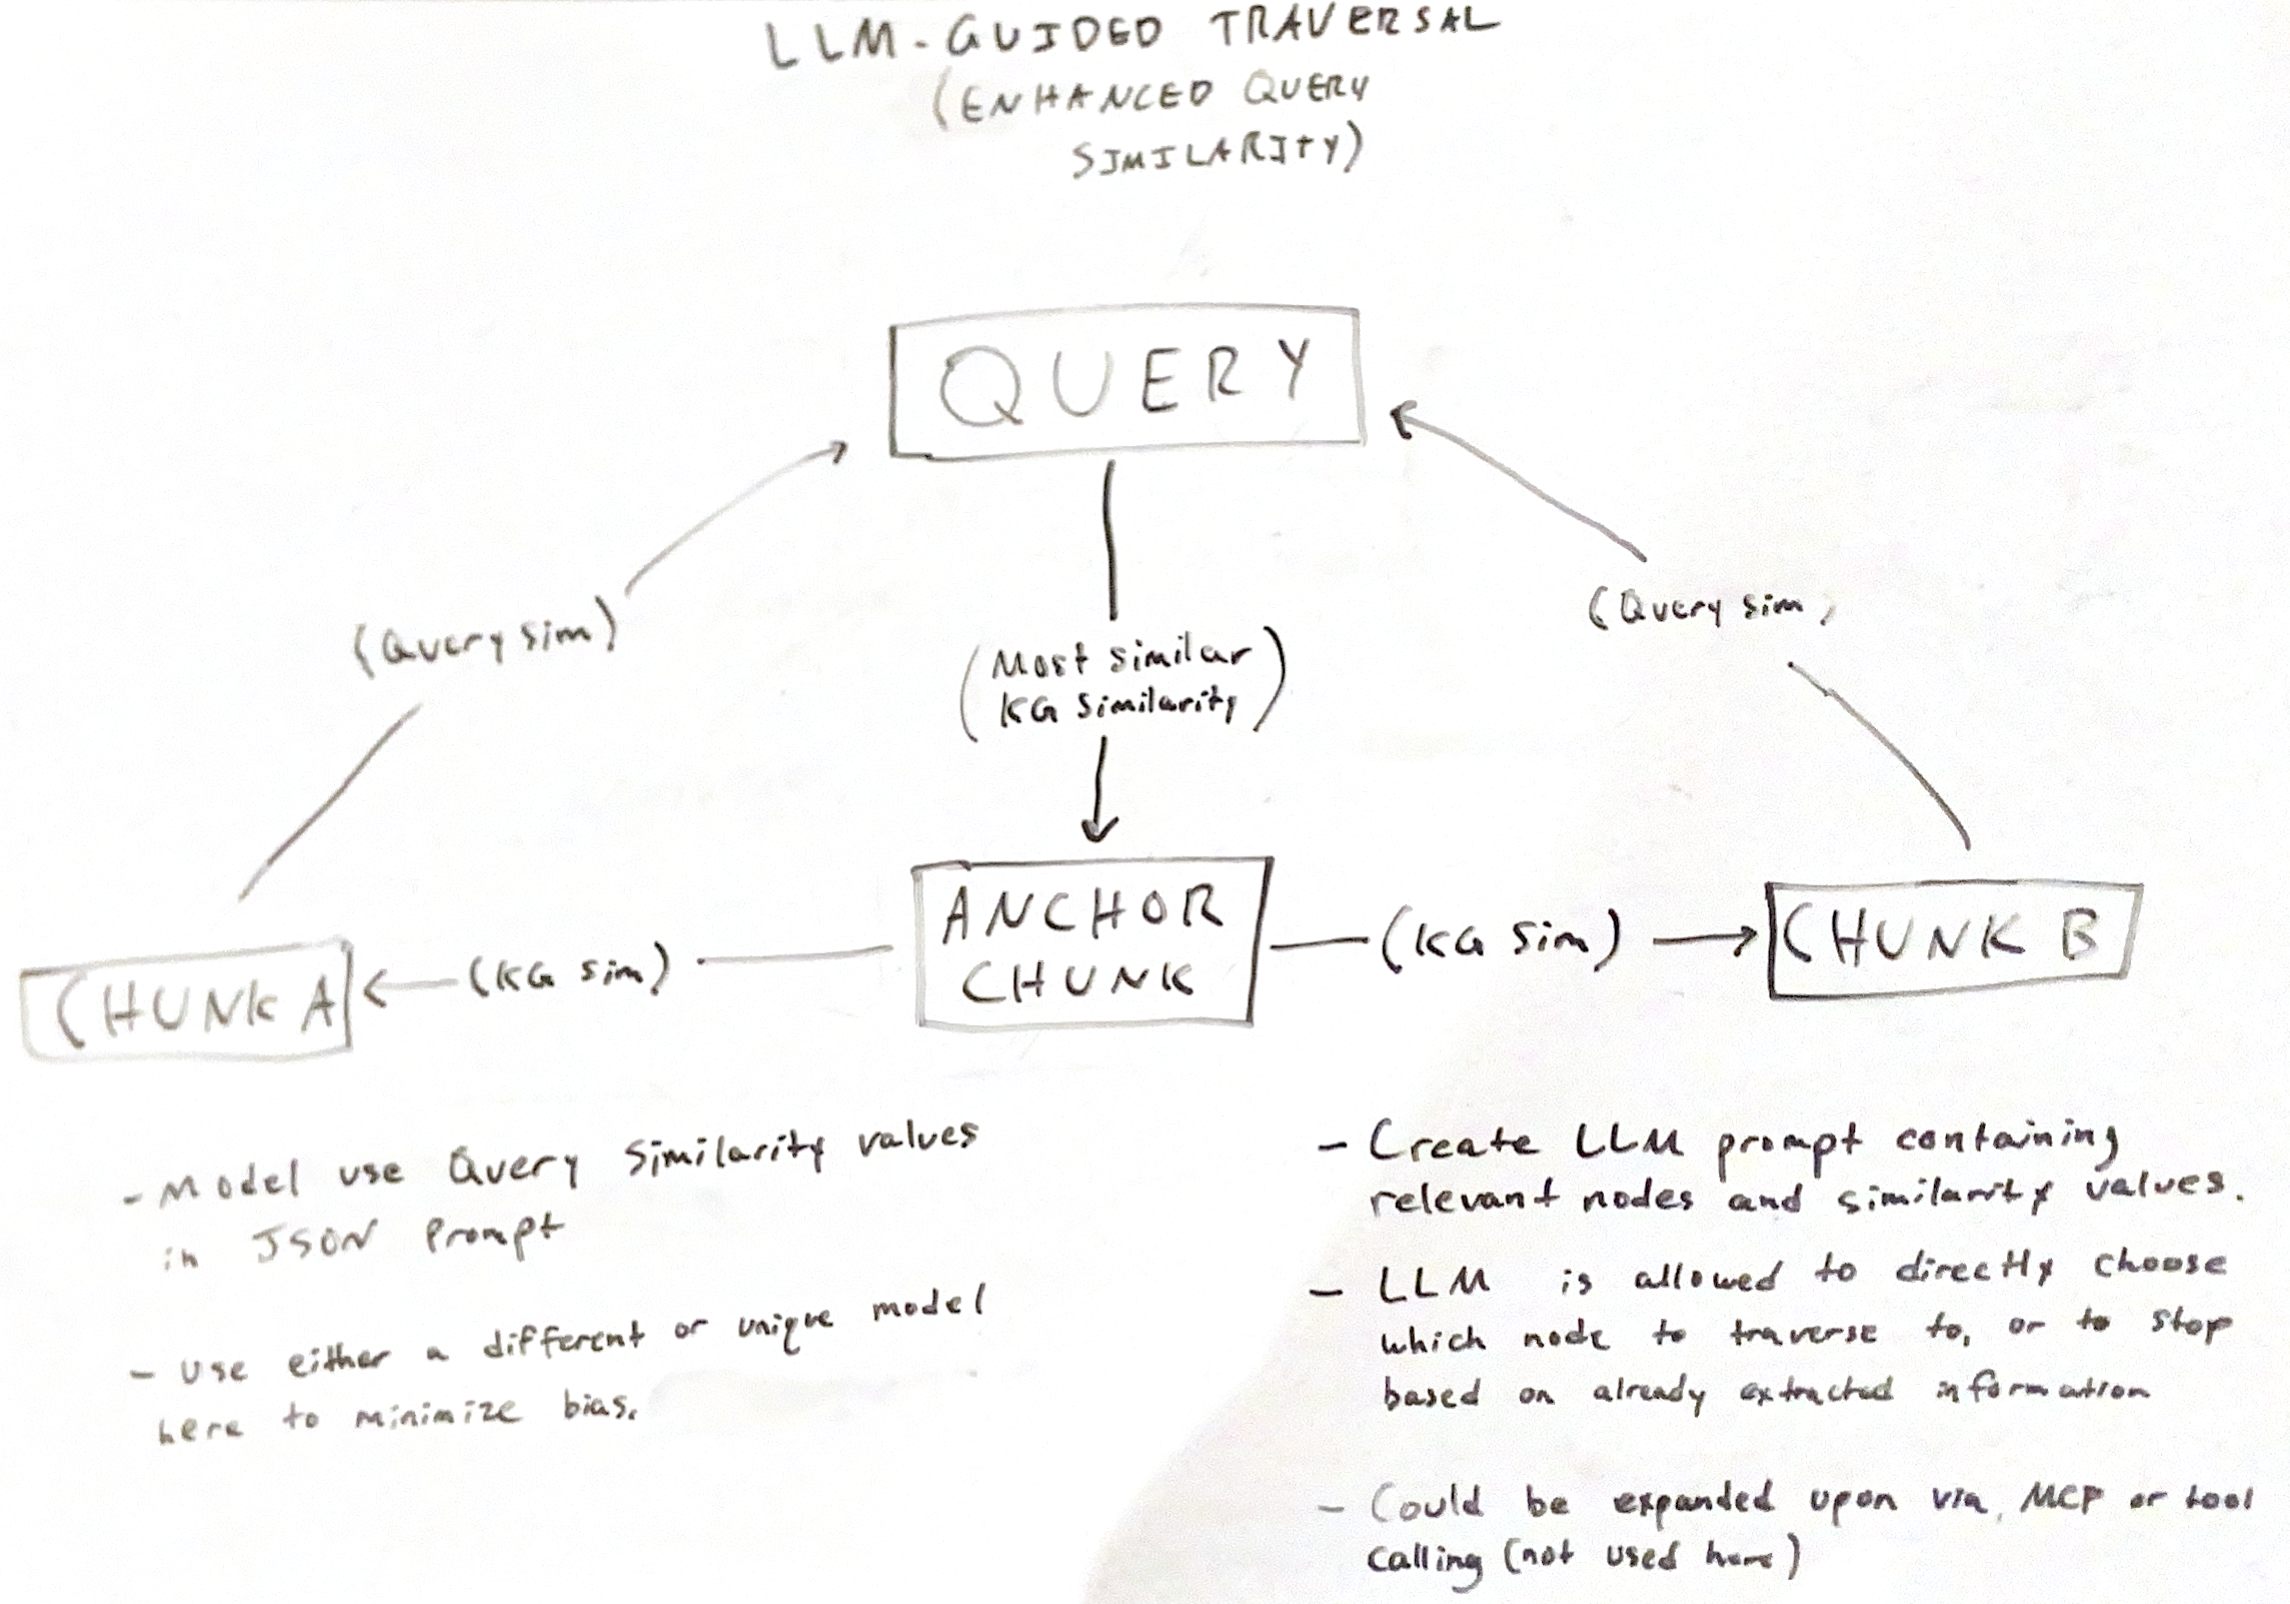 LLM-GUIDED TRAVERSAL
(ENHANCED QUERY
SIMILARITY)
QUERY
(Query sim)
(Query sim)
(Most similar
KG Similarity)
ANCHOR
CHUNK
(KG sim)
CHUNK B
CHUNK A
(KG sim)
- Model use Query Similarity values
in JSON Prompt
- Use either a different or unique model
here to minimize bias.
- Create LLM prompt containing
relevant nodes and similarity values.
- LLM is allowed to directly choose
which node to traverse to, or to stop
based on already extracted information
- Could be expanded upon via, MCP or tool
calling (not used here)